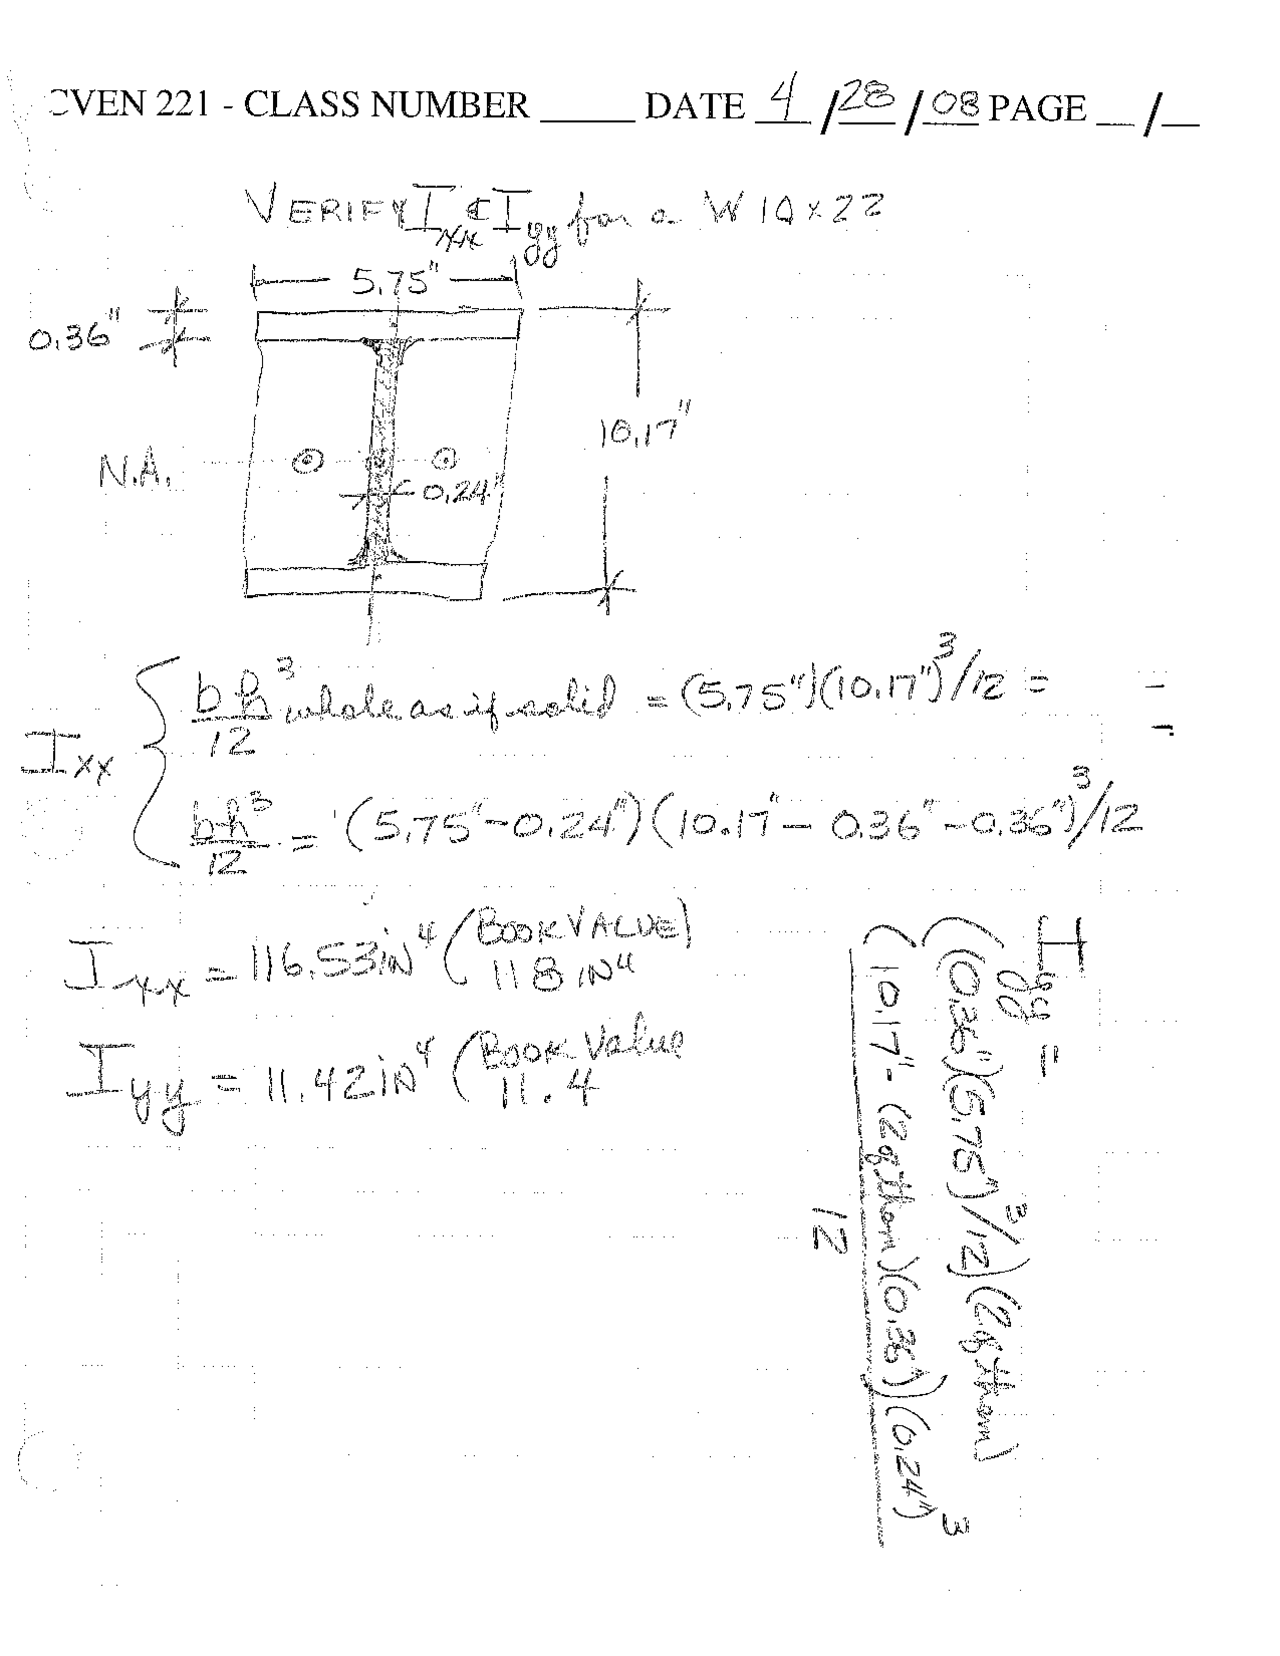 CVEN 221 - CLASS NUMBER _____ DATE 4/28/08 PAGE __/__
VERIFY Ixx & Iyy for a W 10 x 22
5.75"
0.36"
10.17"
N.A.
0.24"
Ixx
bh³/12 whole as if solid = (5.75")(10.17")³/12 =
bh³/12 = (5.75"-0.24")(10.17"-0.36"-0.36")³/12
Ixx = 116.53 iN⁴ (BOOK VALUE)
118 iN⁴
Iyy = 11.42 iN⁴ (Book Value
11.4
Iyy =
((0.36")(5.75")³/12)(2 of them)
(10.17"-(2 of them)(0.36"))(0.24")³
12